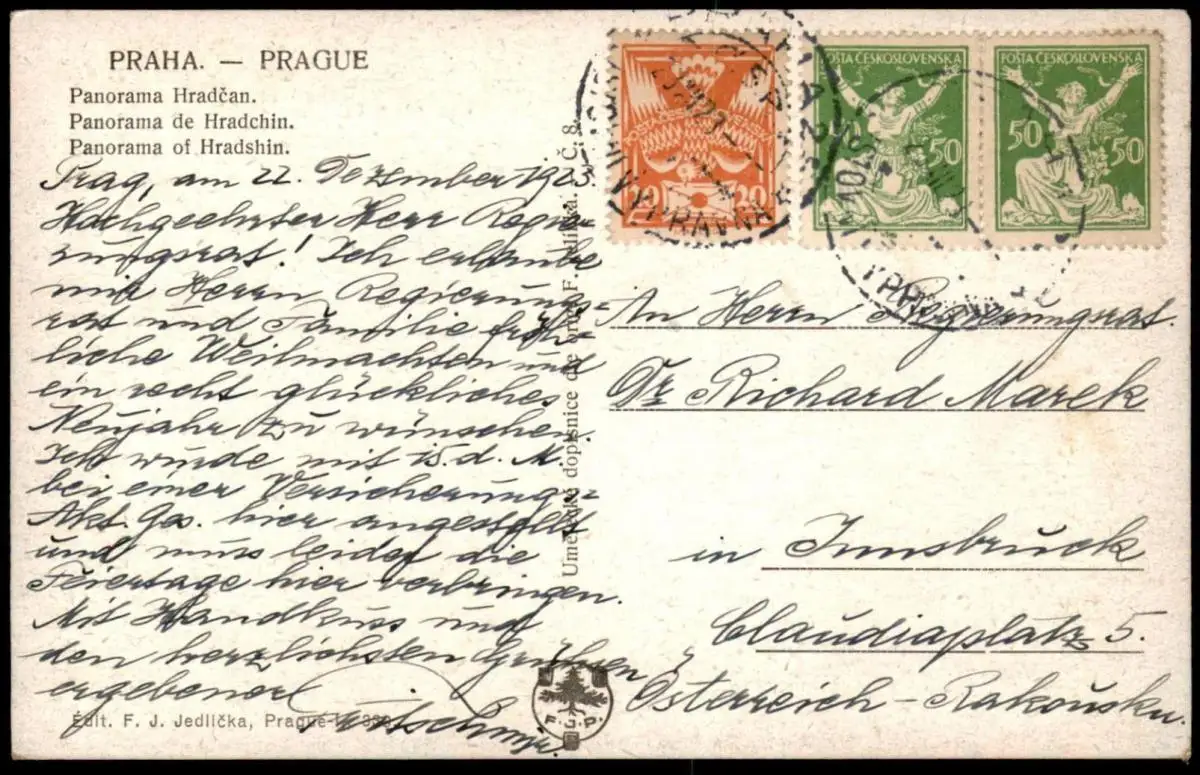 PRAHA. — PRAGUE
Panorama Hradčan.
Panorama de Hradchin.
Panorama of Hradshin.
Prag, am 22. Dezember 1923.
Hochgeehrter Herr Regie-
rungsrat! Ich erlaube
mir Herrn Regierungs-
rat und Familie fröh-
liche Weihnachten und
ein recht glückliches
Neujahr zu wünschen.
Ich wurde mit 15. d. M.
bei einer Versicherungs-
Akt. Ges. hier angestellt
und muss leider die
Feiertage hier verbringen.
Mit Handkuss und
den herzlichsten Grüßen
ergebenst
Edit. F. J. Jedlička, Prague
Umělecké dopisnice
F. J. P.
20 20
POŠTA ČESKOSLOVENSKÁ
50
POŠTA ČESKOSLOVENSKÁ
50 50
An Herrn Regierungsrat
Dr Richard Marek
in Innsbruck
Claudiaplatz 5.
Österreich - Rakousku.